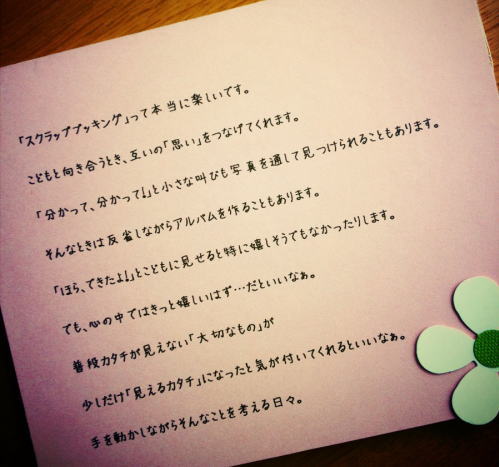 「スクラップブッキング」って本当に楽しいです。
こどもと向き合うとき、互いの「思い」をつなげてくれます。
「分かって、分かって!」と小さな叫びも写真を通して見つけられることもあります。
そんなときは反省しながらアルバムを作ることもあります。
「ほら、できたよ!」とこどもに見せると特に嬉しそうでもなかったりします。
でも、心の中ではきっと嬉しいはず…だといいなぁ。
普段カタチが見えない「大切なもの」が
少しだけ「見えるカタチ」になったと気が付いてくれるといいなぁ。
手を動かしながらそんなことを考える日々。